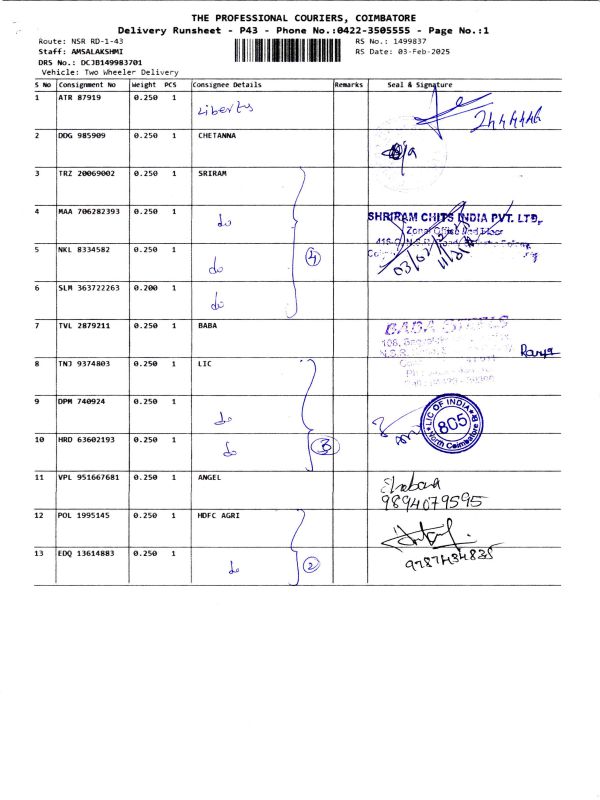 THE PROFESSIONAL COURIERS, COIMBATORE
Delivery Runsheet - P43 - Phone No.:0422-3505555 - Page No.:1
Route: NSR RD-1-43 RS No.: 1499837
Staff: AMSALAKSHMI RS Date: 03-Feb-2025
DRS No.: DCJB149983701
Vehicle: Two Wheeler Delivery
S No Consignment No Weight PCS Consignee Details Remarks Seal & Signature
1 ATR 87919 0.250 1 Liberty 2444446
2 DDG 985909 0.250 1 CHETANNA
3 TRZ 20069002 0.250 1 SRIRAM
4 MAA 706282393 0.250 1 do SHRIRAM CHITS INDIA PVT. LTD.,
5 NKL 8334582 0.250 1 do 4
6 SLM 363722263 0.200 1 do
7 TVL 2879211 0.250 1 BABA BABA STEELS Ramya
8 TNJ 9374803 0.250 1 LIC
9 DPM 740924 0.250 1 do LIC OF INDIA 805 North Coimbatore
10 HRD 63602193 0.250 1 do 3
11 VPL 951667681 0.250 1 ANGEL 9894079595
12 POL 1995145 0.250 1 HDFC AGRI
13 EDQ 13614883 0.250 1 do 2 9787434835